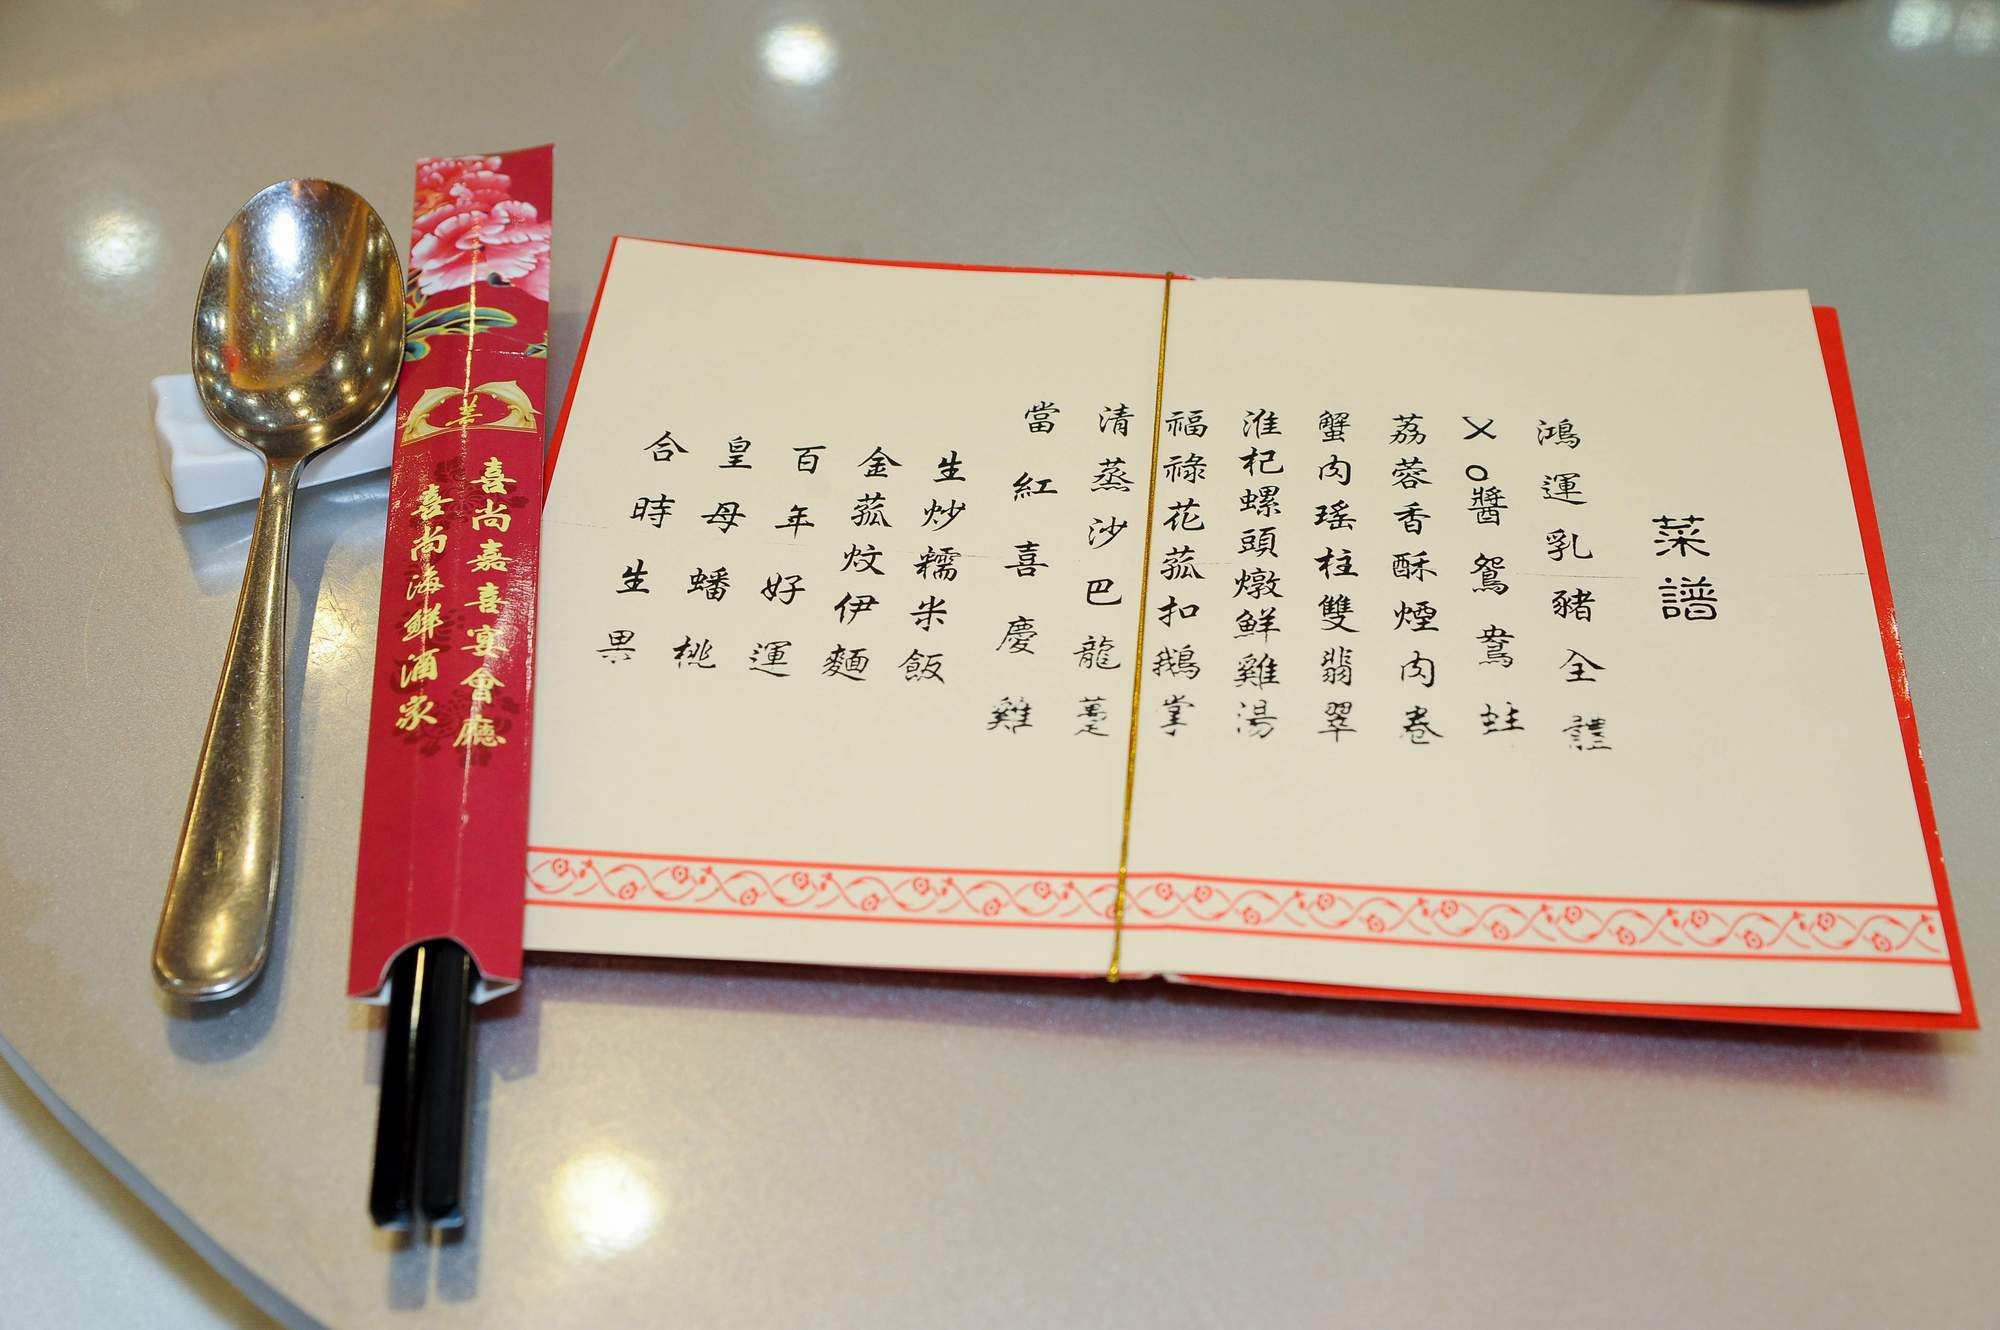 菜譜
鴻運乳豬全體
XO醬鴛鴦蚌
荔蓉香酥煙肉卷
蟹肉瑤柱雙翡翠
淮杞螺頭燉鮮雞湯
福祿花菰扣鵝掌
清蒸沙巴龍躉
當紅喜慶雞
生炒糯米飯
金菰炆伊麵
百年好運
皇母蟠桃
合時生果
喜尚嘉喜宴會廳
喜尚海鮮酒家